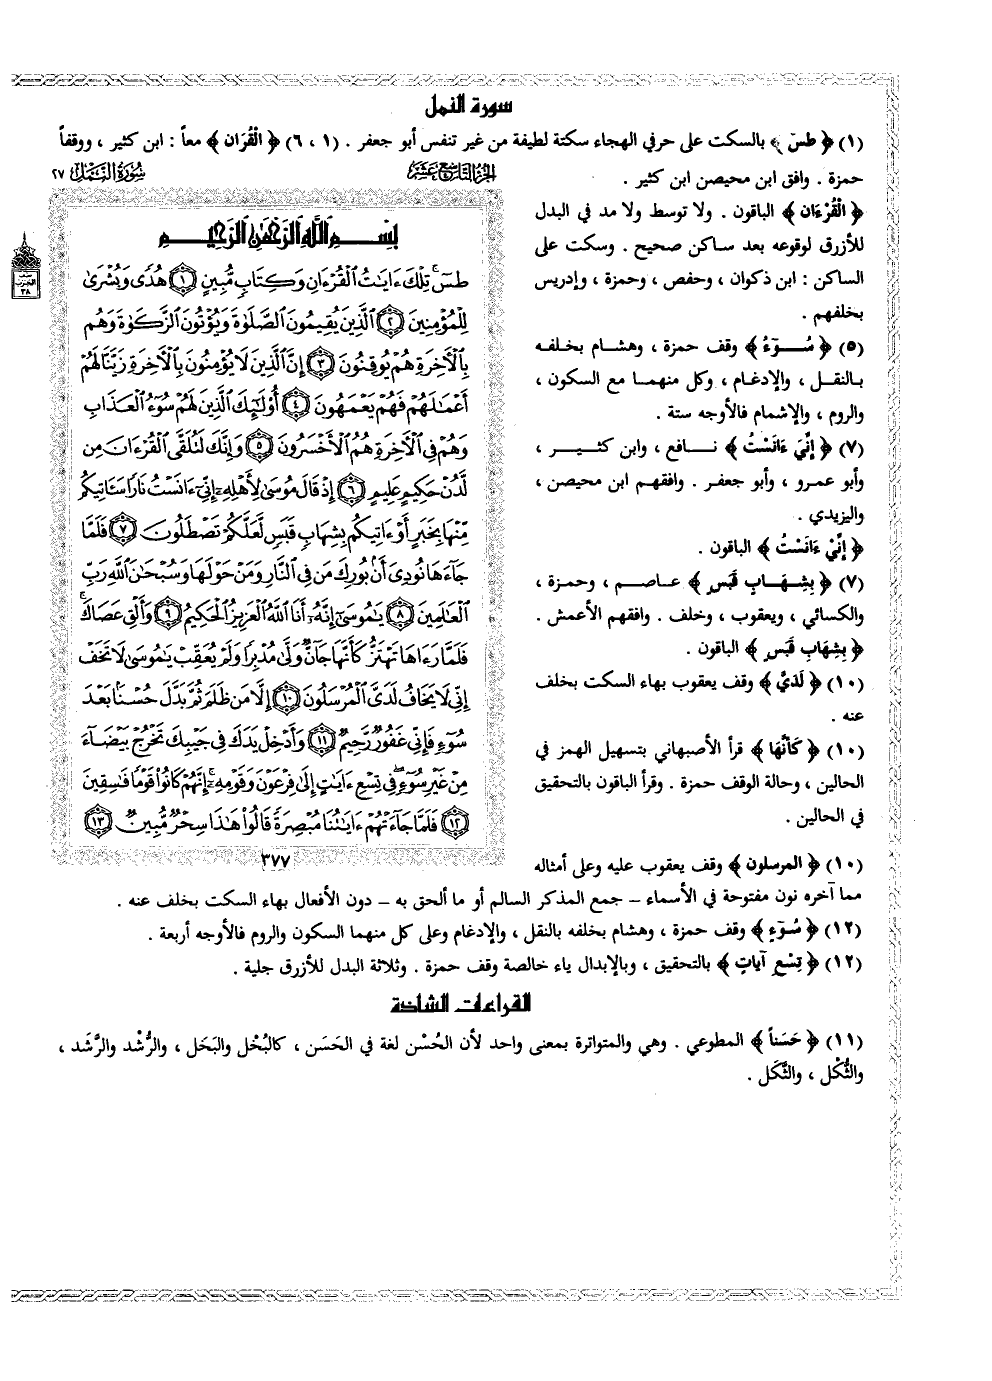 سورة النمل
(١) ﴿ طسٓ ﴾ بالسكت على حرفي الهجاء سكتة لطيفة من غير تنفس أبو جعفر . (١ ، ٦) ﴿ الْقُرَان ﴾ معاً : ابن كثير ، ووقفاً
حمزة . وافق ابن محيصن ابن كثير .
﴿ الْقُرْءَان ﴾ الباقون . ولا توسط ولا مد في البدل
للأزرق لوقوعه بعد ساكن صحيح . وسكت على
الساكن : ابن ذكوان ، وحفص ، وحمزة ، وإدريس
بخلفهم .
(٥) ﴿ سُوٓءُ ﴾ وقف حمزة ، وهشام بخلفه
بالنقل ، والإدغام ، وكل منهما مع السكون ،
والروم ، والإشمام فالأوجه ستة .
(٧) ﴿ إِنِّيَ ءَانَسْتُ ﴾ نافع ، وابن كثير ،
وأبو عمرو ، وأبو جعفر . وافقهم ابن محيصن ،
واليزيدي .
﴿ إِنِّيْ ءَانَسْتُ ﴾ الباقون .
(٧) ﴿ بِشِهَابٍ قَبَسٍ ﴾ عاصم ، وحمزة ،
والكسائي ، ويعقوب ، وخلف . وافقهم الأعمش .
﴿ بِشِهَابِ قَبَسٍ ﴾ الباقون .
(١٠) ﴿ لَدَيَّ ﴾ وقف يعقوب بهاء السكت بخلف
عنه .
(١٠) ﴿ كَأَنَّهَا ﴾ قرأ الأصبهاني بتسهيل الهمز في
الحالين ، وحالة الوقف حمزة . وقرأ الباقون بالتحقيق
في الحالين .
(١٠) ﴿ المرسلون ﴾ وقف يعقوب عليه وعلى أمثاله
الجزء التاسع عشر
سورة النمل ٢٧
بِسْمِ اللَّهِ الرَّحْمَٰنِ الرَّحِيمِ
طسٓ تِلْكَ ءَايَٰتُ الْقُرْءَانِ وَكِتَابٍ مُّبِينٍ ١ هُدًى وَبُشْرَىٰ
لِلْمُؤْمِنِينَ ٢ الَّذِينَ يُقِيمُونَ الصَّلَوٰةَ وَيُؤْتُونَ الزَّكَوٰةَ وَهُم
بِالْأَخِرَةِ هُمْ يُوقِنُونَ ٣ إِنَّ الَّذِينَ لَا يُؤْمِنُونَ بِالْأَخِرَةِ زَيَّنَّا لَهُمْ
أَعْمَٰلَهُمْ فَهُمْ يَعْمَهُونَ ٤ أُوْلَٰٓئِكَ الَّذِينَ لَهُمْ سُوٓءُ الْعَذَابِ
وَهُمْ فِي الْأَخِرَةِ هُمُ الْأَخْسَرُونَ ٥ وَإِنَّكَ لَتُلَقَّى الْقُرْءَانَ مِن
لَّدُنْ حَكِيمٍ عَلِيمٍ ٦ إِذْ قَالَ مُوسَىٰ لِأَهْلِهِۦٓ إِنِّيٓ ءَانَسْتُ نَارًا سَـَٔاتِيكُم
مِّنْهَا بِخَبَرٍ أَوْ ءَاتِيكُم بِشِهَابٍ قَبَسٍ لَّعَلَّكُمْ تَصْطَلُونَ ٧ فَلَمَّا
جَآءَهَا نُودِيَ أَنۢ بُورِكَ مَن فِي النَّارِ وَمَنْ حَوْلَهَا وَسُبْحَٰنَ اللَّهِ رَبِّ
الْعَٰلَمِينَ ٨ يَٰمُوسَىٰٓ إِنَّهُۥٓ أَنَا اللَّهُ الْعَزِيزُ الْحَكِيمُ ٩ وَأَلْقِ عَصَاكَ ۚ
فَلَمَّا رَءَاهَا تَهْتَزُّ كَأَنَّهَا جَآنٌّ وَلَّىٰ مُدْبِرًا وَلَمْ يُعَقِّبْ ۚ يَٰمُوسَىٰ لَا تَخَفْ
إِنِّي لَا يَخَافُ لَدَيَّ الْمُرْسَلُونَ ١٠ إِلَّا مَن ظَلَمَ ثُمَّ بَدَّلَ حُسْنًۢا بَعْدَ
سُوٓءٍ فَإِنِّي غَفُورٌ رَّحِيمٌ ١١ وَأَدْخِلْ يَدَكَ فِي جَيْبِكَ تَخْرُجْ بَيْضَآءَ
مِنْ غَيْرِ سُوٓءٍ ۖ فِي تِسْعِ ءَايَٰتٍ إِلَىٰ فِرْعَوْنَ وَقَوْمِهِۦٓ ۚ إِنَّهُمْ كَانُوا۟ قَوْمًا فَٰسِقِينَ
١٢ فَلَمَّا جَآءَتْهُمْ ءَايَٰتُنَا مُبْصِرَةً قَالُوا۟ هَٰذَا سِحْرٌ مُّبِينٌ ١٣
٣٧٧
مما آخره نون مفتوحة في الأسماء – جمع المذكر السالم أو ما ألحق به – دون الأفعال بهاء السكت بخلف عنه .
(١٢) ﴿ سُوٓءٍ ﴾ وقف حمزة ، وهشام بخلفه بالنقل ، والإدغام وعلى كل منهما السكون والروم فالأوجه أربعة .
(١٢) ﴿ تِسْعِ آيَاتٍ ﴾ بالتحقيق ، وبالإبدال ياء خالصة وقف حمزة . وثلاثة البدل للأزرق جلية .
القراءات الشاذة
(١١) ﴿ حَسَناً ﴾ المطوعي . وهي والمتواترة بمعنى واحد لأن الحُسْن لغة في الحَسَن ، كالبُخْل والبَخَل ، والرُّشْد والرَّشَد ،
والثُّكْل ، والثَّكَل .